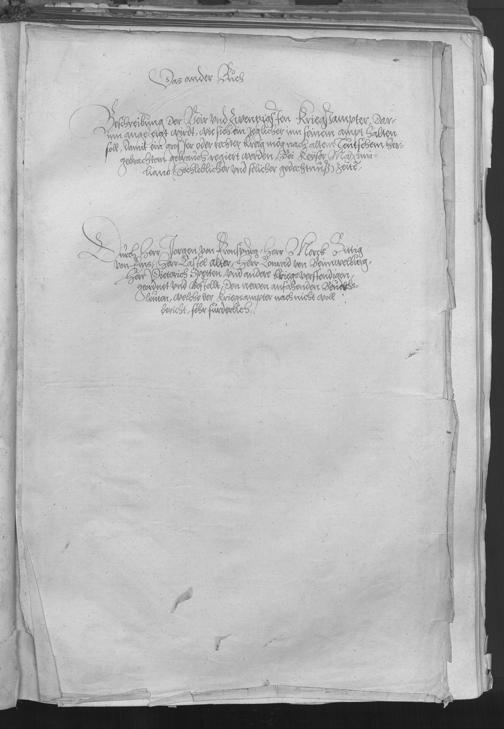 Das ander Buch
Beschreibung der Vier und Zwenzigsten Kriegsampter, dar-
inn angezeigt wirdt, wie sich ein jeglicher inn seinem ampt halten
soll, damit ein grosser oder rechter krieg mög nach altem Teutschem her-
gebrachtem gebrauch regiert werden, Bei Keyser Maximi-
liani (hochloblicher und seliger gedechtnuß) zeite
Durch Herr Jorgen von Fronsperg, Herr Merck Sittig
von Embs, Herr Cassel alter, Herr Conrad von Beinnelburg,
Herr Dieterich Spetten, und andere kriegsverstendigen,
geordnet und bestellt, den newen anfahenden
welche der kriegsampter noch nicht woll
bericht, sehr fürderlich